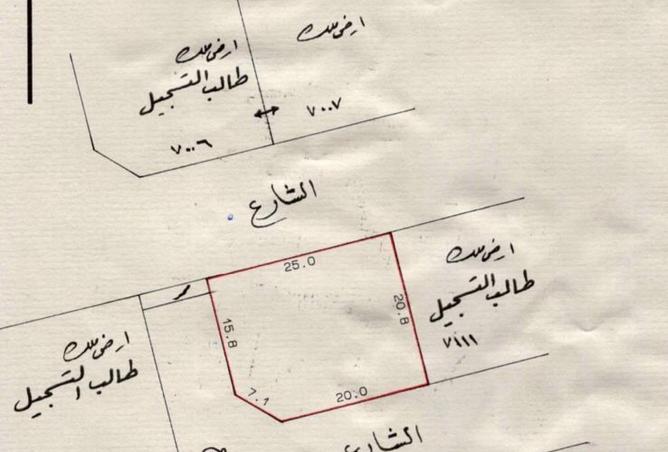 ارض ملك
ارض ملك
طالب التسجيل
٧٠٠٧
٧٠٠٦
الشارع
25.0
ارض ملك
طالب التسجيل
٧١١١
20.8
15.8
ارض ملك
طالب التسجيل
7.1
20.0
الشارع